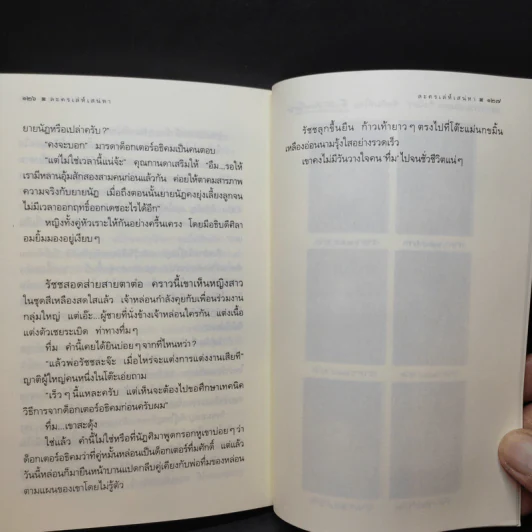 ๑๒๖ ■ ละครเล่ห์เสน่หา
ยายนัฏหรือเปล่าครับ?"
"คงจะบอก" มารดาด็อกเตอร์อธิคมเป็นคนตอบ
"แต่ไม่ใช่เวลานี้แน่จ้ะ" คุณกานดาเสริมให้ "อืม...รอให้
เรามีหลานอุ้มสักสองสามคนก่อนแล้วกัน ค่อยให้ตาคมสารภาพ
ความจริงกับยายนัฏ เมื่อถึงตอนนั้นยายนัฏคงยุ่งเลี้ยงลูกจน
ไม่มีเวลาออกฤทธิ์ออกเดชอะไรได้อีก"
หญิงทั้งคู่หัวเราะให้กันอย่างครื้นเครง โดยมีชิบดีศิลา
อมยิ้มมองอยู่เงียบๆ
รัชชสอดส่ายสายตาต่อ คราวนี้เขาเห็นหญิงสาว
ในชุดสีเหลืองสดใสแล้ว เจ้าหล่อนกำลังคุยกับเพื่อนร่วมงาน
กลุ่มใหญ่ แต่เอ๊ะ...ผู้ชายที่นั่งข้างเจ้าหล่อนใครกัน แต่งเนื้อ
แต่งตัวเชยระเบิด ท่าทางทึ่มๆ
ทึ่ม คำนี้เคยได้ยินบ่อยๆ จากที่ไหนหว่า?
"แล้วพ่อรัชชละจ๊ะ เมื่อไหร่จะแต่งการแต่งงานเสียที"
ญาติผู้ใหญ่คนหนึ่งในโต๊ะเอ่ยถาม
"เร็วๆ นี้แหละครับ แต่เห็นจะต้องไปขอศึกษาเทคนิค
วิธีการจากด็อกเตอร์อธิคมก่อนครับผม"
ทึ่ม...เขาสะดุ้ง
ใช่แล้ว คำนี้ไม่ใช่หรือที่นัฏศิมาพูดกรอกหูเขาบ่อยๆ ว่า
ด็อกเตอร์อธิคมว่าที่คู่หมั้นหล่อนเป็นด็อกเตอร์ทึ่มศักดิ์ แต่แล้ว
วันนี้หล่อนก็มายืนหน้าบานแฉ่งกลีบคู่เคียงกับพ่อทึ่มของหล่อน
ตามแผนของเขาโดยไม่รู้ตัว
ละครเล่ห์เสน่หา ■ ๑๒๗
รัชชลุกขึ้นยืน ก้าวเท้ายาวๆ ตรงไปที่โต๊ะแม่นกขมิ้น
เหลืองอ่อนนามรุ้งใสอย่างรวดเร็ว
เขาคงไม่มีวันวางใจคน 'ทึ่ม' ไปจนชั่วชีวิตแน่ๆ